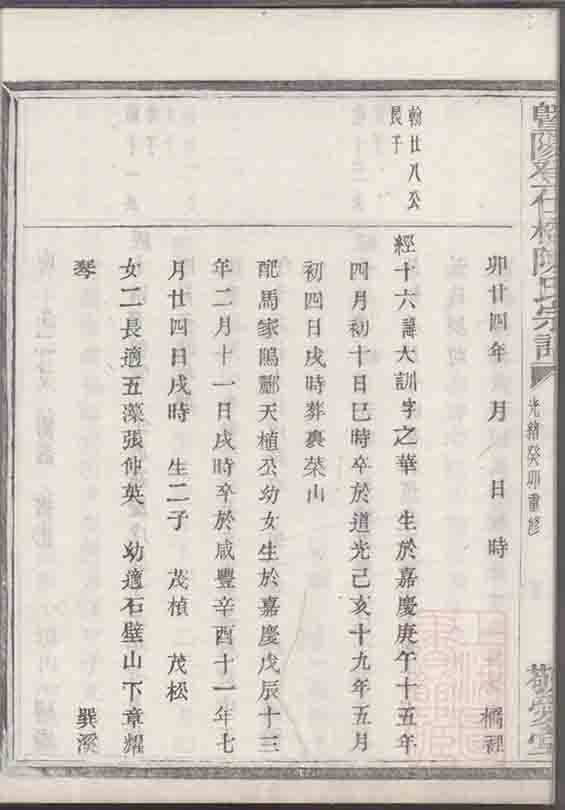 暨陽石橋陳氏宗譜
光緒癸卯重修
敬愛堂
卯廿四年 月 日 時
翰廿八公
長子
經十六諱大訓字之華 生於嘉慶庚午十五年
四月初十日巳時卒於道光己亥十九年五月
初四日戌時葬裏荣山
配馬家鴫酈天植公幼女生於嘉慶戊辰十三
年二月十一日戌時卒於咸豐辛酉十一年七
月廿四日戌時 生二子 茂楨 茂松
女二長適五藻張仲英 幼適石壁山下章耀
琴